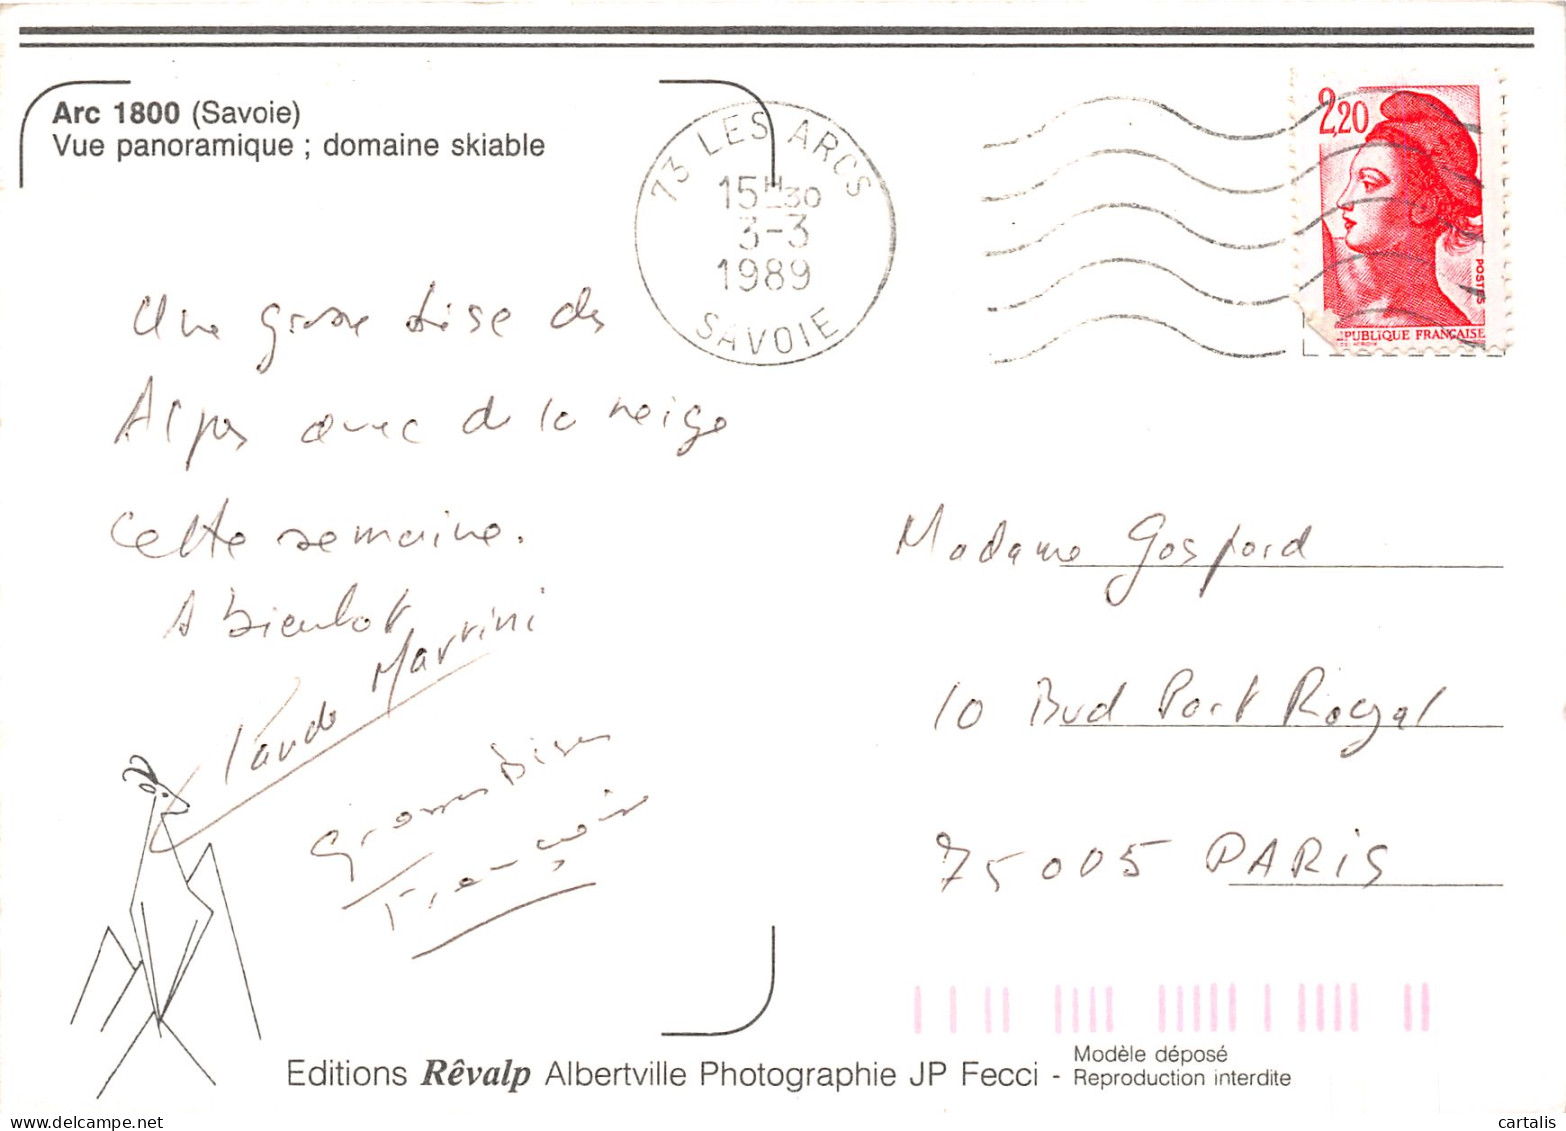 Arc 1800 (Savoie)
Vue panoramique ; domaine skiable
73 LES ARCS
15H30
3-3
1989
SAVOIE
2,20
POSTES
PUBLIQUE FRANÇAISE
Une grosse bise des
Alpes avec de la neige
cette semaine.
A bientot
Martini
Grosses Bises
François
Madame Gospord
10 Bvd Port Royal
75005 PARIS
Editions Rêvalp Albertville Photographie JP Fecci - Modèle déposé
Reproduction interdite
cartalis